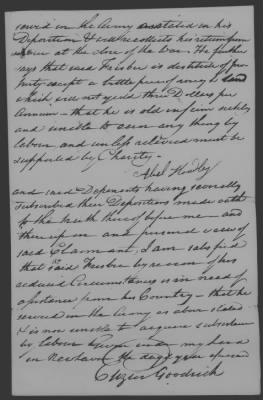 served in the Army as stated in his
Deposition & well recollects his return from
at the close of the War. He further
says that said Frisbee is destitute of pro-
perty except a little piece of land
which will not yield three Dollars per
Annum – that he is old infirm sickly
and unable to earn any thing by
labour and unless relieved must be
supported by Charity –
Abel
and said Deponents having severally
subscribed their Depositions made oath
to the truth thereof before me – and
thereupon and personal view of
said Claimant, I am satisfied
that said Frisbee by reason of his
reduced Circumstances is in need of
assistance from his Country – that he
served in the Army as above stated
& is now unable to acquire subsistence
by labour Given under my hand
in Newhaven the day & year aforesaid
Elizur Goodrich